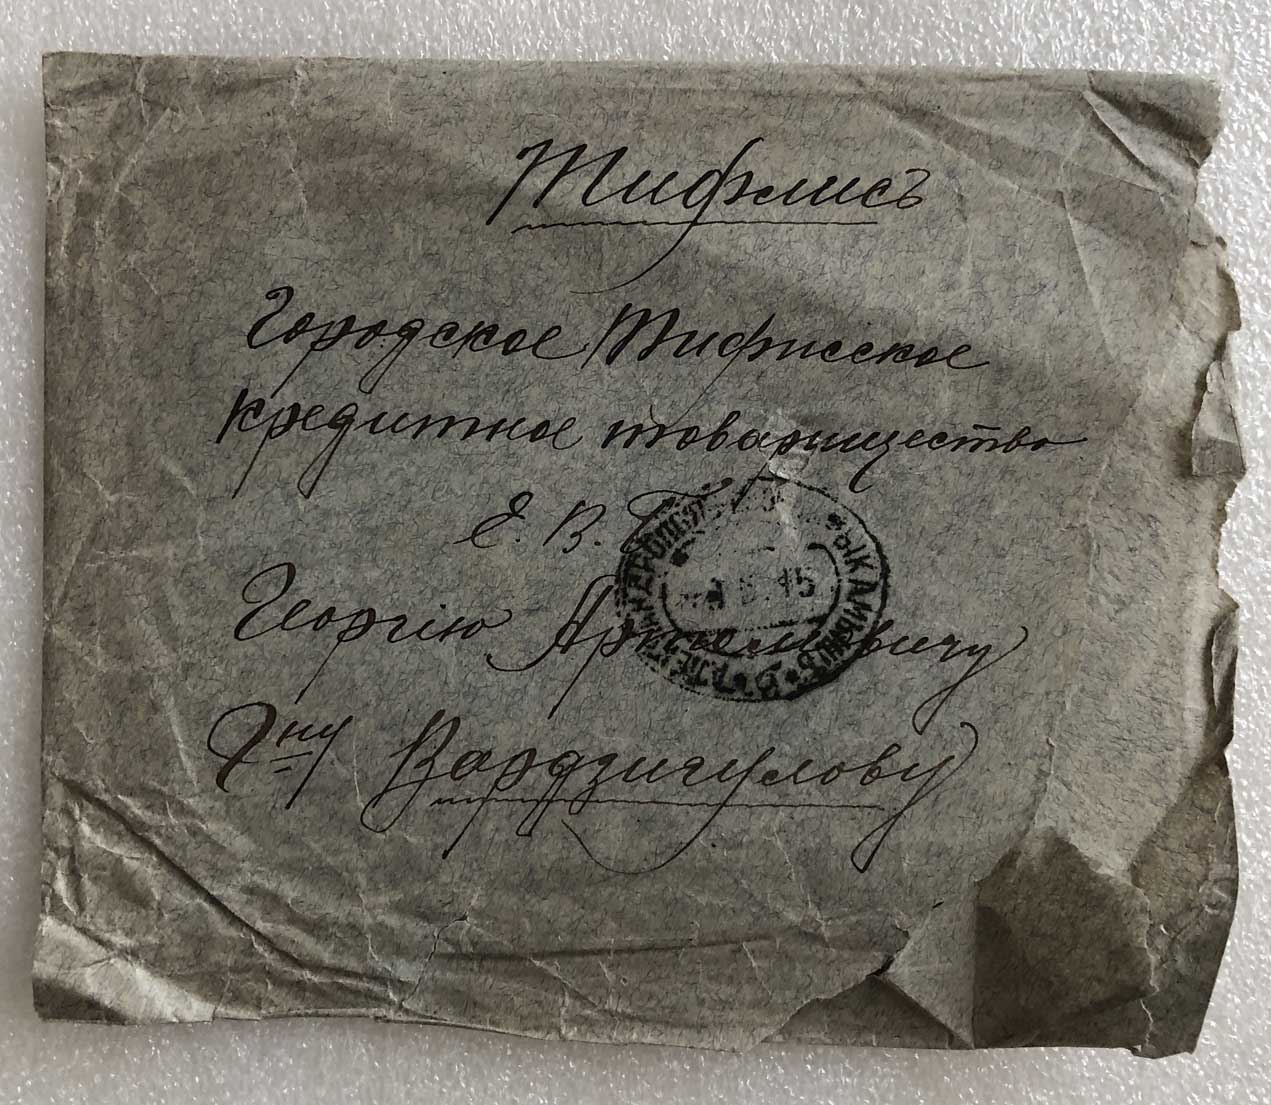 Тифлисъ
Городское Тифлисское
кредитное товарищество
Е. В. Б.
Георгію Артемьевичу
Гну Вардзигулову
15